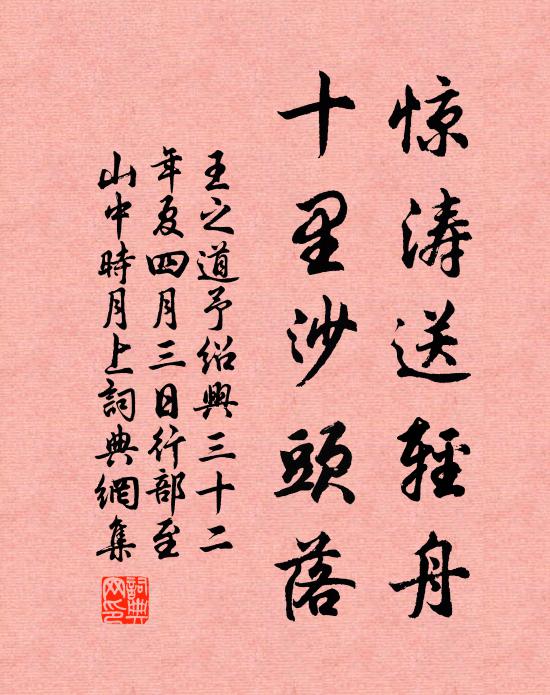 惊涛送輕舟
十里沙頭落
王之道予紹興三十二
年夏四月三日行部至
山中時月上詞典網集
詞典网印